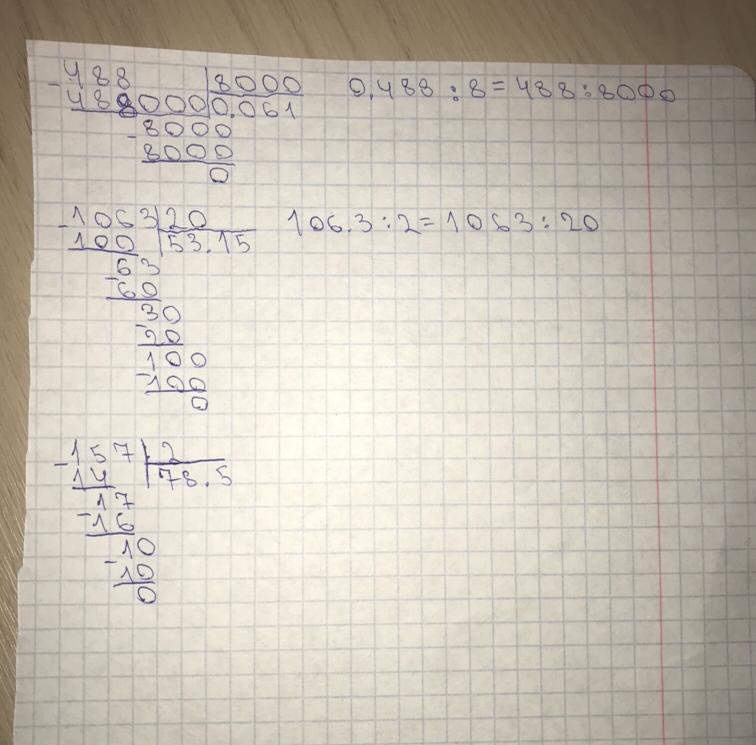 488 8000 0,488 : 8 = 488 : 8000
- 4880000 0.061
- 8000
8000
0
- 1063 20 106.3 : 2 = 1063 : 20
100 53.15
63
- 60
30
- 20
100
- 100
0
- 157 2
14 78.5
17
- 16
10
- 10
0